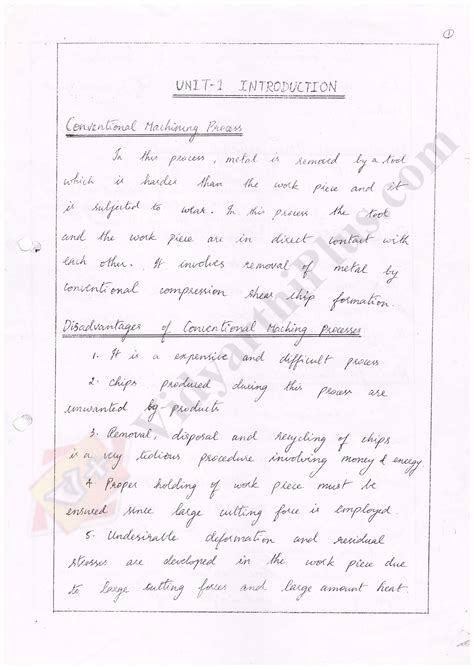 1
UNIT-1 INTRODUCTION
Conventional Machining Process
In this process, metal is removed by a tool
which is harder than the work piece and it
is subjected to wear. In this process the tool
and the work piece are in direct contact with
each other. It involves removal of metal by
conventional compression shear chip formation.
Disadvantages of Conventional Maching processes
1. It is a expensive and difficult process
2. Chips produced during this process are
unwanted by-products
3. Removal, disposal and recycling of chips
is a very tedious procedure involving money & energy.
4. Proper holding of work piece must be
ensured since large cutting force is employed.
5. Undesirable deformation and residual
stresses are developed in the work piece due
to large cutting forces and large amount heat.
VidyarthiPlus.com
V+